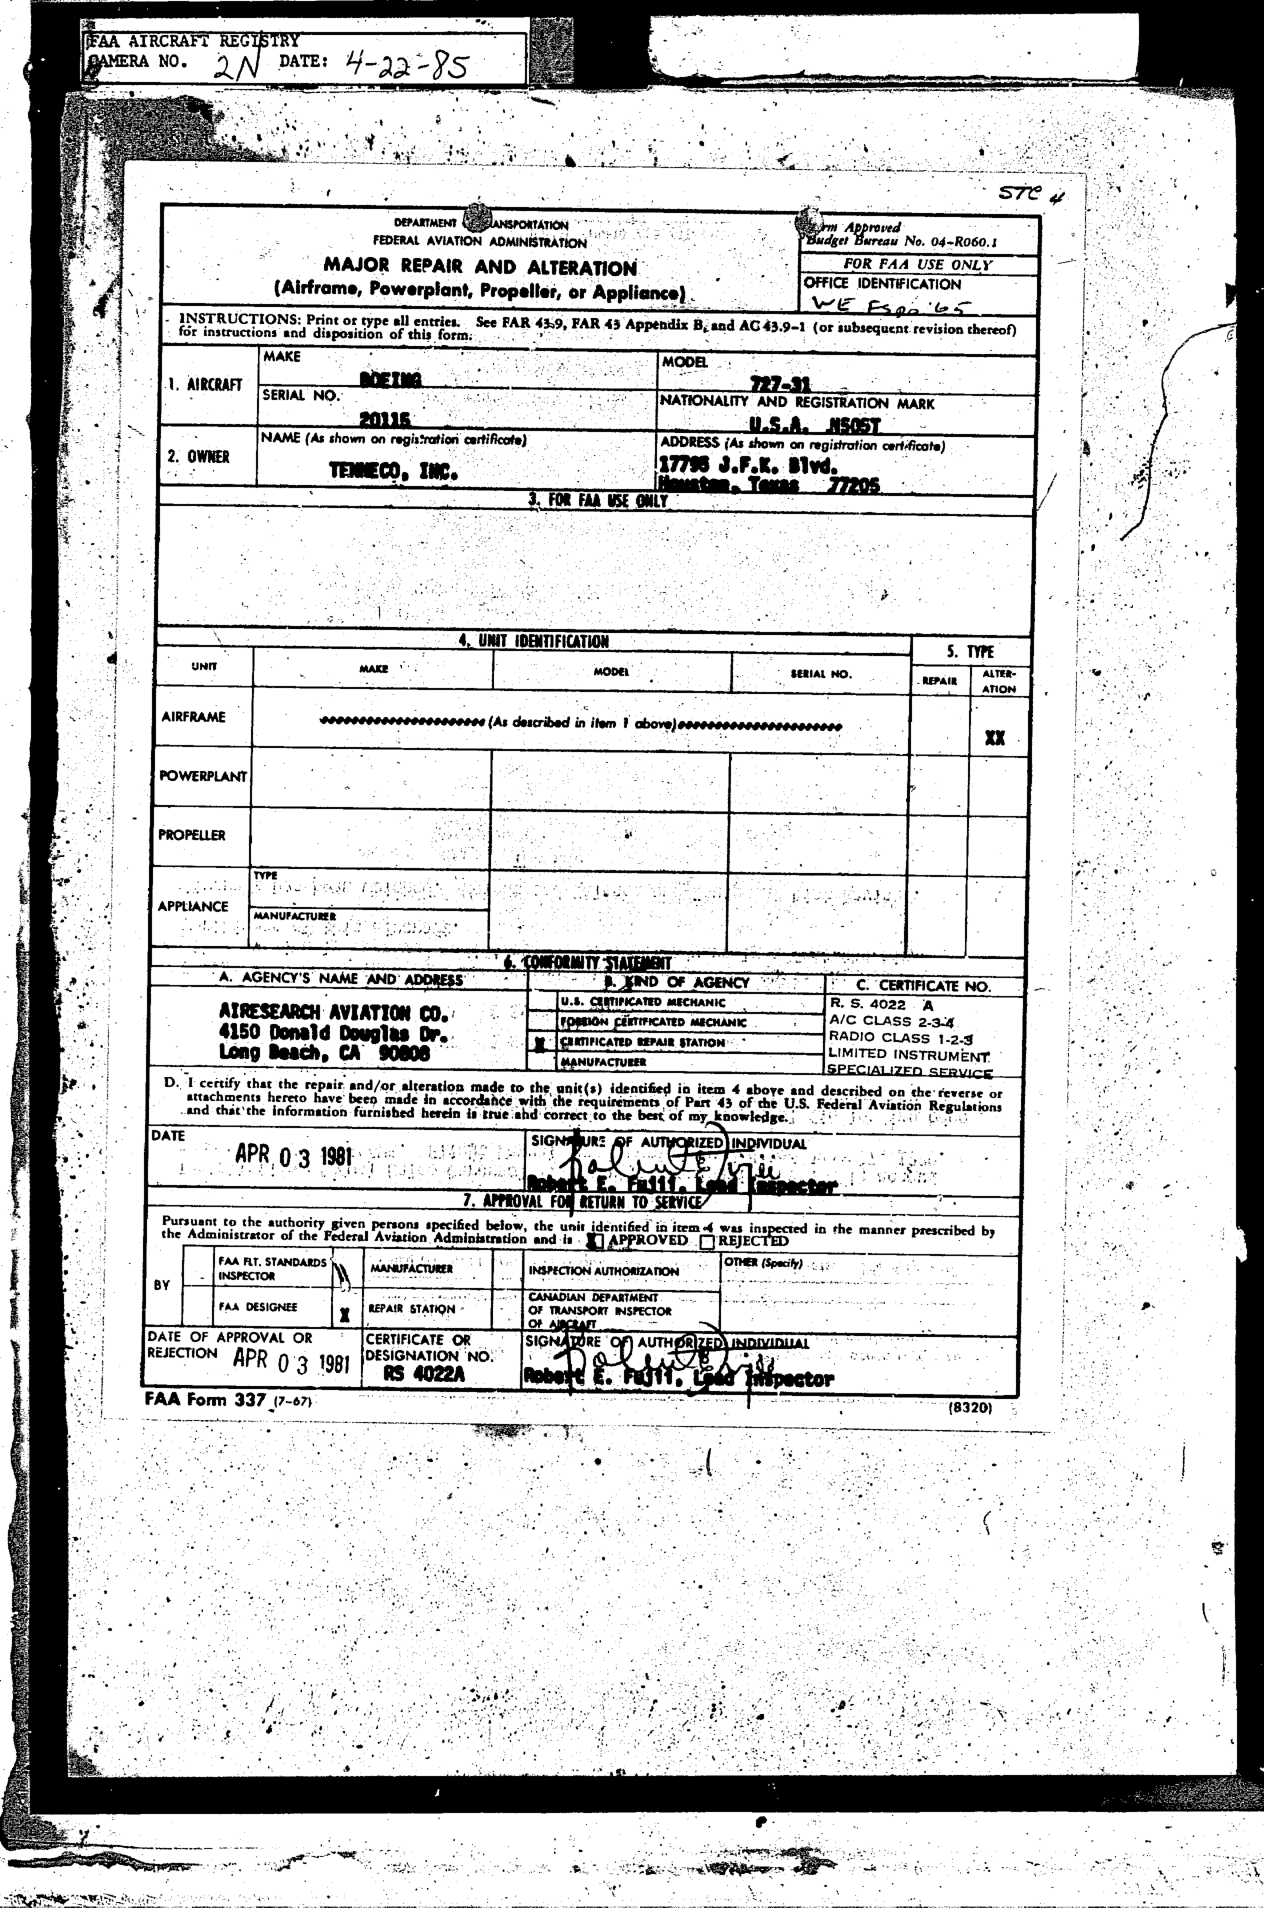 FAA AIRCRAFT REGISTRY
CAMERA NO. 2N DATE: 4-22-85
STC 4
DEPARTMENT TRANSPORTATION
FEDERAL AVIATION ADMINISTRATION
MAJOR REPAIR AND ALTERATION
(Airframe, Powerplant, Propeller, or Appliance)
Form Approved
Budget Bureau No. 04-R060.1
FOR FAA USE ONLY
OFFICE IDENTIFICATION
WE
INSTRUCTIONS: Print or type all entries. See FAR 43.9, FAR 43 Appendix B, and AC 43.9-1 (or subsequent revision thereof)
for instructions and disposition of this form.
1. AIRCRAFT
MAKE
BOEING
MODEL
727-31
SERIAL NO.
20115
NATIONALITY AND REGISTRATION MARK
U.S.A. N505T
2. OWNER
NAME (As shown on registration certificate)
TENNECO, INC.
ADDRESS (As shown on registration certificate)
17795 J.F.K. Blvd.
Houston, Texas 77205
3. FOR FAA USE ONLY
4. UNIT IDENTIFICATION
5. TYPE
UNIT
MAKE
MODEL
SERIAL NO.
REPAIR
ALTER-
ATION
AIRFRAME
(As described in item 1 above)
XX
POWERPLANT
PROPELLER
APPLIANCE
TYPE
MANUFACTURER
6. CONFORMITY STATEMENT
A. AGENCY'S NAME AND ADDRESS
B. KIND OF AGENCY
C. CERTIFICATE NO.
AIRESEARCH AVIATION CO.
4150 Donald Douglas Dr.
Long Beach, CA 90808
U.S. CERTIFICATED MECHANIC
FOREIGN CERTIFICATED MECHANIC
X CERTIFICATED REPAIR STATION
MANUFACTURER
R. S. 4022 A
A/C CLASS 2-3-4
RADIO CLASS 1-2-3
LIMITED INSTRUMENT
SPECIALIZED SERVICE
D. I certify that the repair and/or alteration made to the unit(s) identified in item 4 above and described on the reverse or
attachments hereto have been made in accordance with the requirements of Part 43 of the U.S. Federal Aviation Regulations
and that the information furnished herein is true and correct to the best of my knowledge.
DATE
APR 03 1981
SIGNATURE OF AUTHORIZED INDIVIDUAL
Robert E. Fujii, Lead Inspector
7. APPROVAL FOR RETURN TO SERVICE
Pursuant to the authority given persons specified below, the unit identified in item 4 was inspected in the manner prescribed by
the Administrator of the Federal Aviation Administration and is X APPROVED REJECTED
BY
FAA FLT. STANDARDS
INSPECTOR
MANUFACTURER
INSPECTION AUTHORIZATION
OTHER (Specify)
FAA DESIGNEE
X
REPAIR STATION
CANADIAN DEPARTMENT
OF TRANSPORT INSPECTOR
OF AIRCRAFT
DATE OF APPROVAL OR
REJECTION APR 03 1981
CERTIFICATE OR
DESIGNATION NO.
RS 4022A
SIGNATURE OF AUTHORIZED INDIVIDUAL
Robert E. Fujii, Lead Inspector
FAA Form 337 (7-67)
(8320)